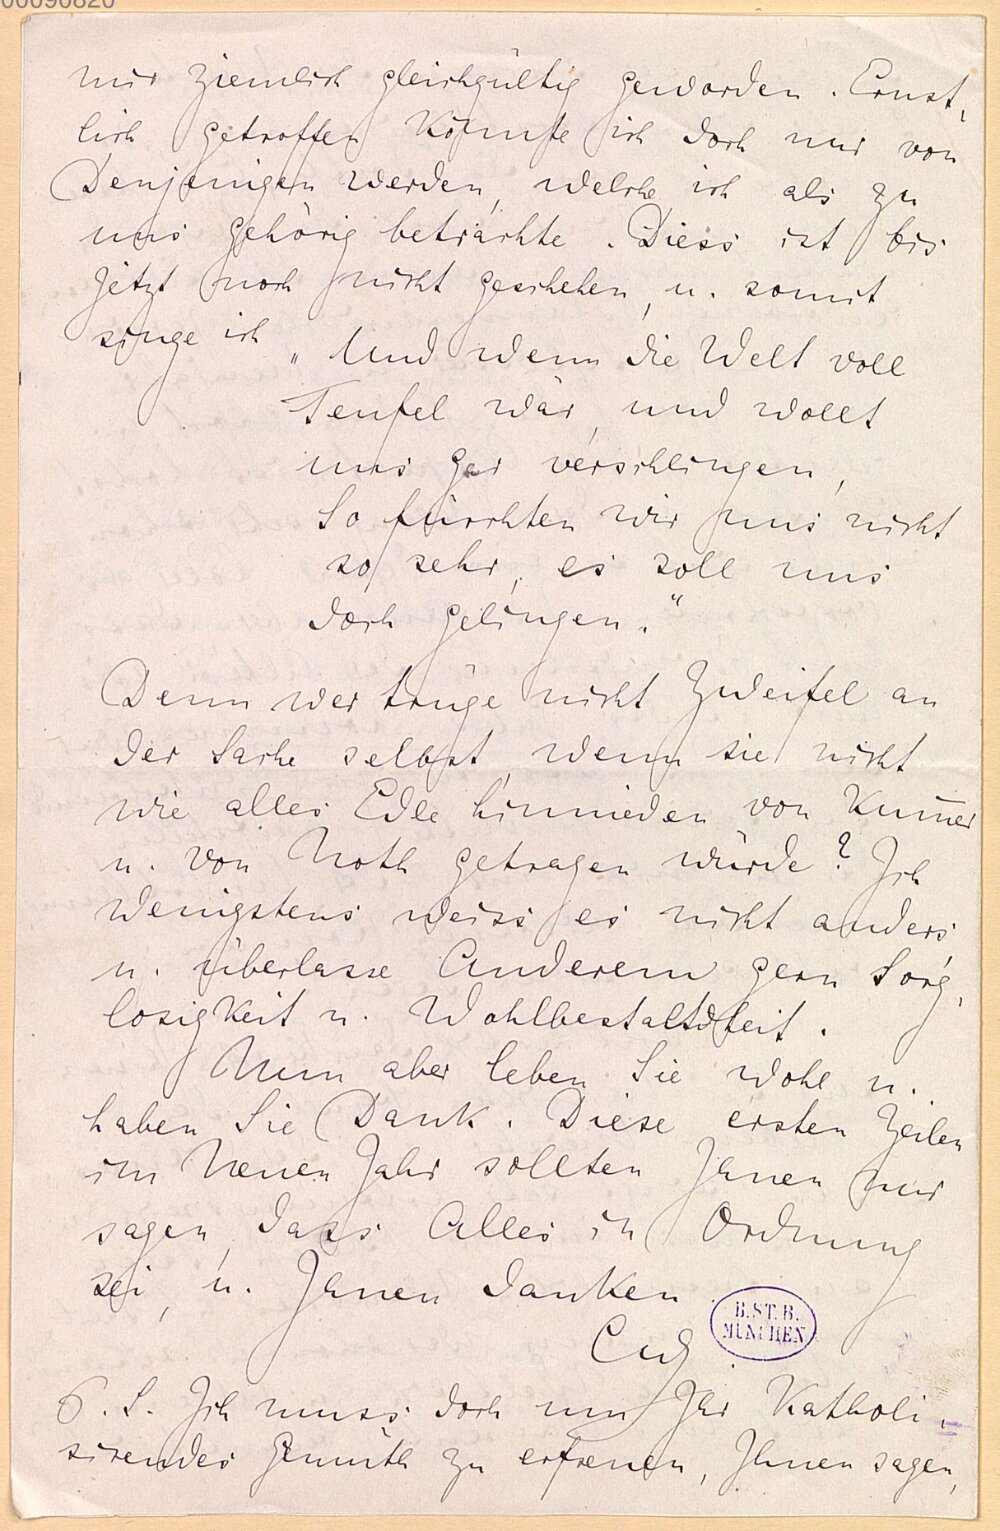 00090820
mir ziemlich gleichgültig geworden. Ernst-
lich getroffen könnte ich doch nur von
Denjenigen werden, welche ich als zu
uns gehörig betrachte. Diess ist bis
jetzt noch nicht geschehen, u. somit
singe ich „Und wenn die Welt voll
Teufel wär, und wollt
uns gar verschlingen,
So fürchten wir uns nicht
so sehr, es soll uns
doch gelingen.“
Denn wer trüge nicht Zweifel an
der Sache selbst, wenn sie nicht
wie alles Edle hinnieden von Kum̄er
u. von Noth getragen würde? Ich
wenigstens weiss es nicht anders
u. überlasse Anderem gern Sorg-
losigkeit u. Wohlbestaltheit.
Nun aber leben Sie wohl u.
haben Sie Dank. Diese ersten Zeilen
im Neuen Jahr sollten Ihnen nur
sagen, dass Alles in Ordnung
sei, u. Ihnen danken
B.ST.B.
MÜNCHEN
P.S. Ich muss doch um Ihr Katholi-
sirendes Gemüth zu erfreuen, Ihnen sagen,